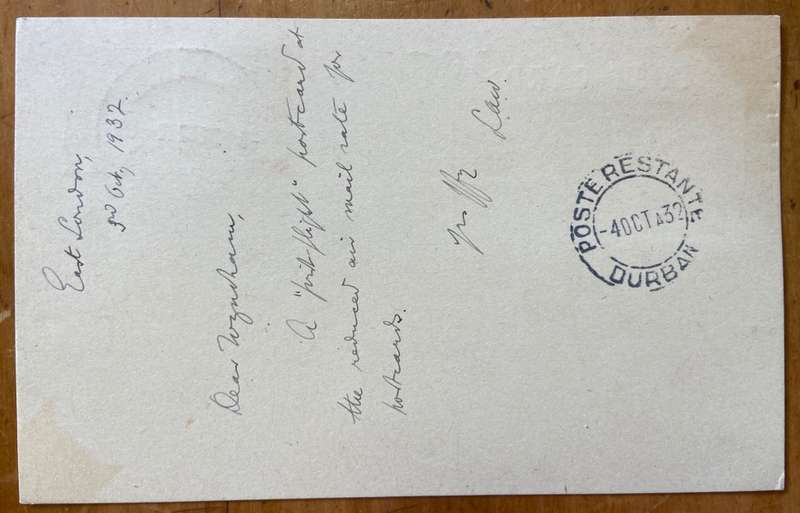 East London,
3rd Oct, 1932.
Dear Wyndham,
A "first flight" postcard at
the reduced air mail rate for
postcards.
Law.
POSTE RESTANTE
-4 OCT A 32
DURBAN